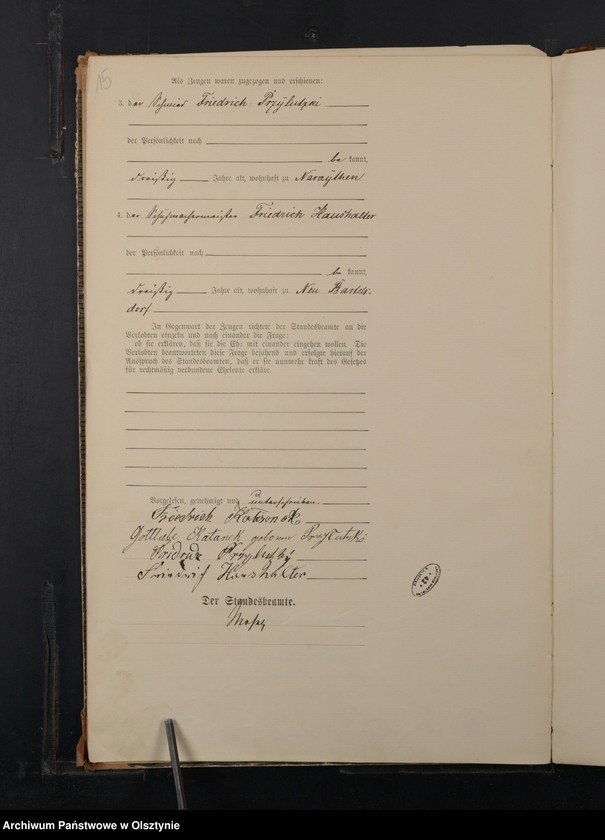 15
Als Zeugen waren zugezogen und erschienen:
3. der Schmied Friedrich Przylutzki
der Persönlichkeit nach
be kannt,
dreißig Jahre alt, wohnhaft zu Naraythen
4. der Schuhmachermeister Friedrich Haushalter
der Persönlichkeit nach
be kannt,
dreißig Jahre alt, wohnhaft zu Neu Bartels-
dorf
In Gegenwart der Zeugen richtete der Standesbeamte an die
Verlobten einzeln und nach einander die Frage:
ob sie erklären, daß sie die Ehe mit einander eingehen wollen. Die
Verlobten beantworteten diese Frage bejahend und erfolgte hierauf der
Ausspruch des Standesbeamten, daß er sie nunmehr kraft des Gesetzes
für rechtmäßig verbundene Eheleute erkläre.
Vorgelesen, genehmigt und unterschrieben.
Friedrich
Gottliebe geborene
Przylutzki
Friedrich Haushalter
Der Standesbeamte.
Archiwum Państwowe w Olsztynie